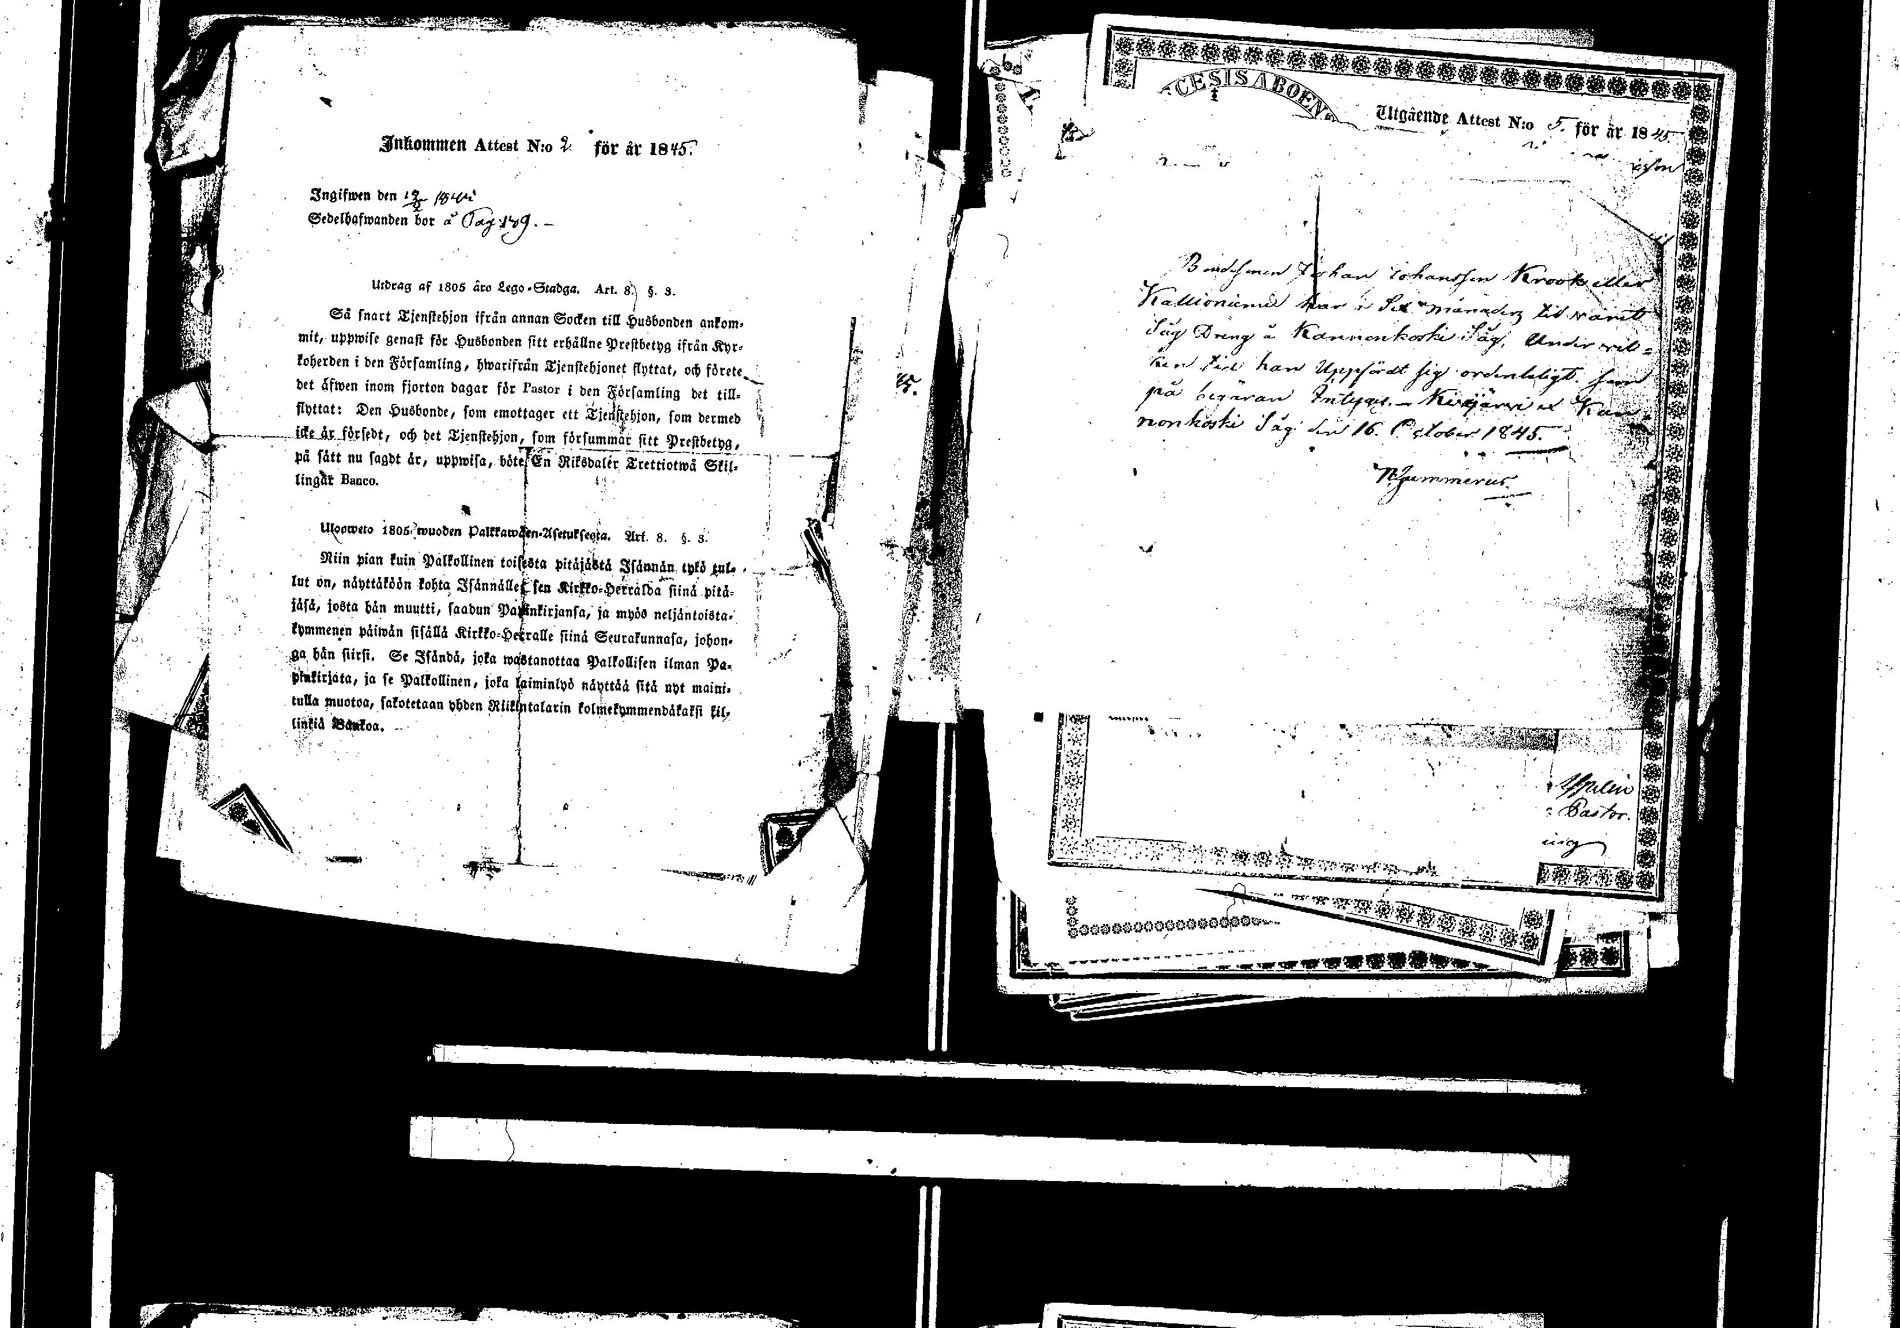 Inkommen Attest N:o 2 för år 1845.
Ingifwen den
Sedelhafwanden bor å Pag: 189.
Utdrag af 1805 års Lego-Stadga. Art. 8. §. 3.
Så snart Tjenstehjon ifrån annan Socken till Husbonden ankom-
mit, uppwise genast för Husbonden sitt erhållne Prestbetyg ifrån Kyr-
koherden i den Församling, hwarifrån Tjenstehjonet flyttat, och förete
det äfwen inom fjorton dagar för Pastor i den Församling det till-
flyttat: Den Husbonde, som emottager ett Tjenstehjon, som dermed
icke är försedt, och det Tjenstehjon, som försummar sitt Prestbetyg,
på sätt nu sagdt är, uppwisa, böte En Riksdaler Trettiotwå Skil-
lingar Banco.
Ulosweto 1805 wuoden Palkkawäen-Asetuksesta. Art. 8. §. 3.
Niin pian kuin Palkollinen toisesta pitäjästä Isännän tykö tul-
lut on, näyttäköön kohta Isännälle sen Kirkko-Herralda siinä pitä-
jäsä, josta hän muutti, saadun Papinkirjansa, ja myös neljäntoista-
kymmenen päiwän sisällä Kirkko-Herralle siinä Seurakunnasa, johon-
ga hän siirsi. Se Isändä, joka wastanottaa Palkollisen ilman Pa-
pinkirjata, ja se Palkollinen, joka laiminlyö näyttää sitä nyt maini-
tulla muotoa, sakotetaan yhden Riikintalarin kolmekymmendäkaksi kil-
linkiä Bankoa.
45.
CESIS ABOEN
Utgående Attest N:o 5. för år 1845.
Bondesonen Johan Johansson Krook eller
Kallioniemi har i Sex månaders tid warit
Såg Dräng å Kannonkoski Såg, Under wil-
ken tid han Uppfördt sig ordenteligt. som
på begäran Intygas. Kiwijärwi et Kan-
nonkoski Såg den 16. October 1845.
Gummerus.
Pastor.